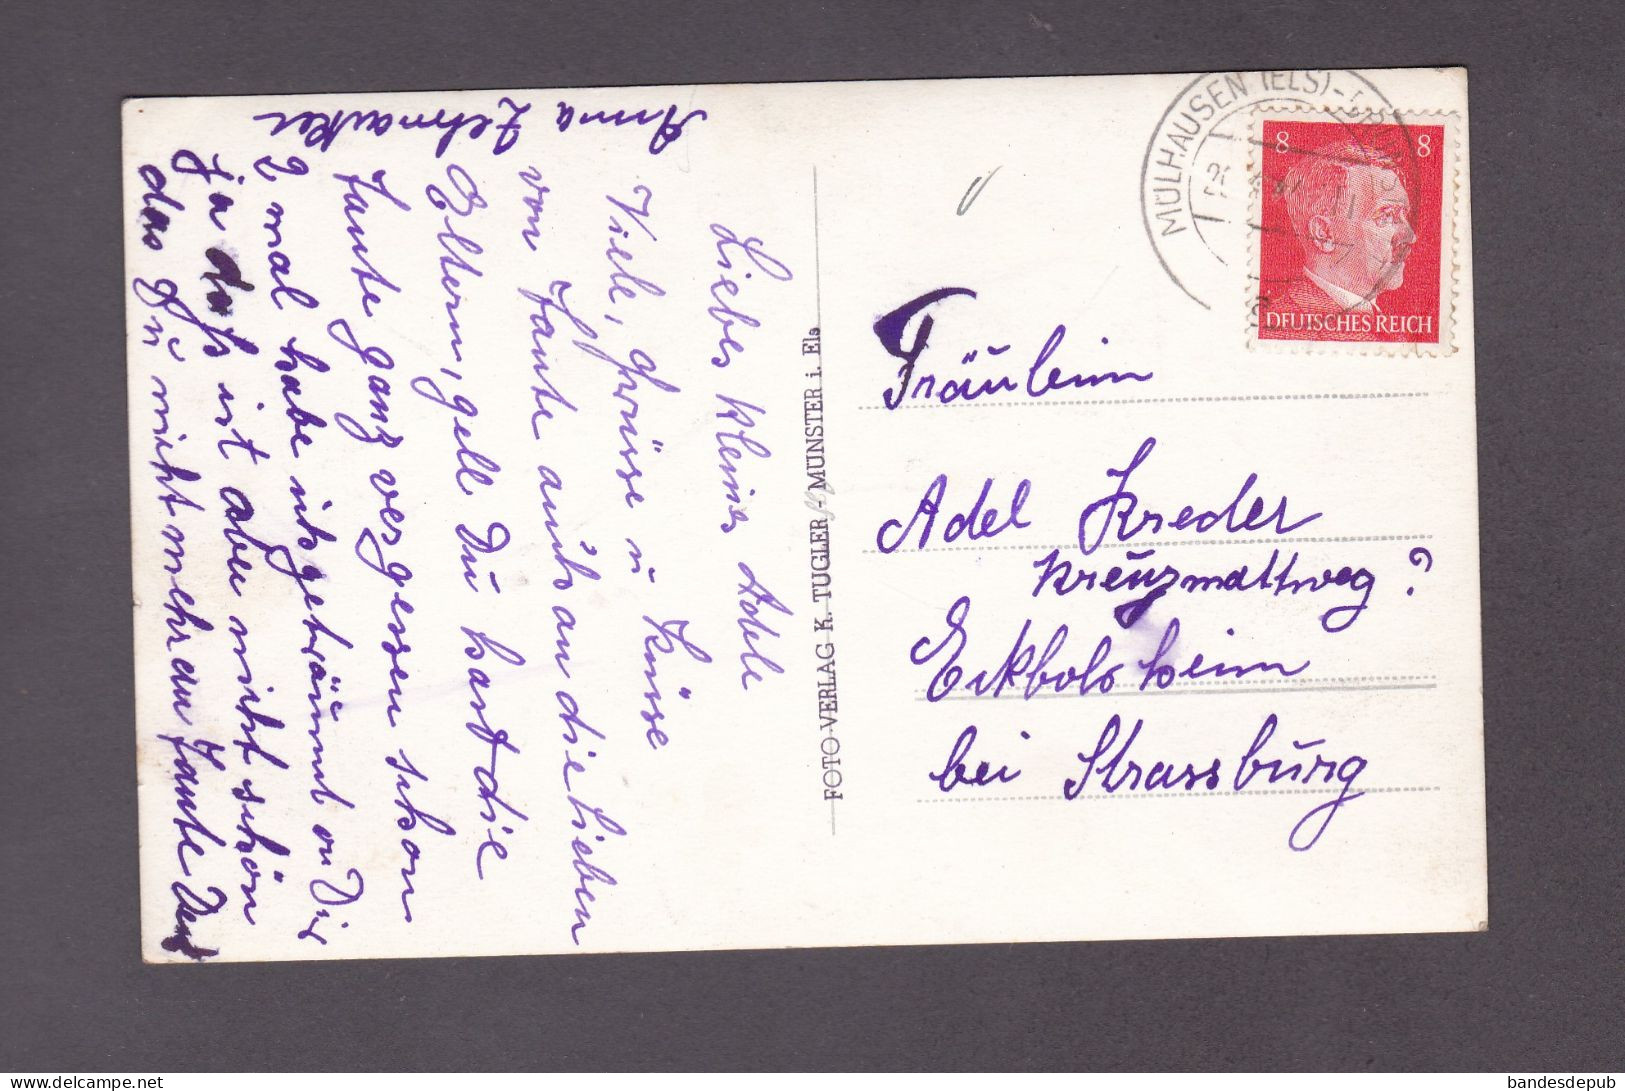 Liebes kleines Adele
Viele, Grüsse u Küsse
von Tante auch an die Lieben
Eltern, gell Du hast die
Tante ganz vergessen schon
2 mal habe ich geträumt von Dir
ja das ist aber nicht schön
das Du nicht mehr an Tante
Anna
FOTO-VERLAG K. TUGLER - MUNSTER i. Els.
MÜLHAUSEN (ELS)
8 8
DEUTSCHES REICH
Fräulein
Adel Kreder
Kreuzmattweg ?
Eckbolsheim
bei Strassburg
bandesdepub